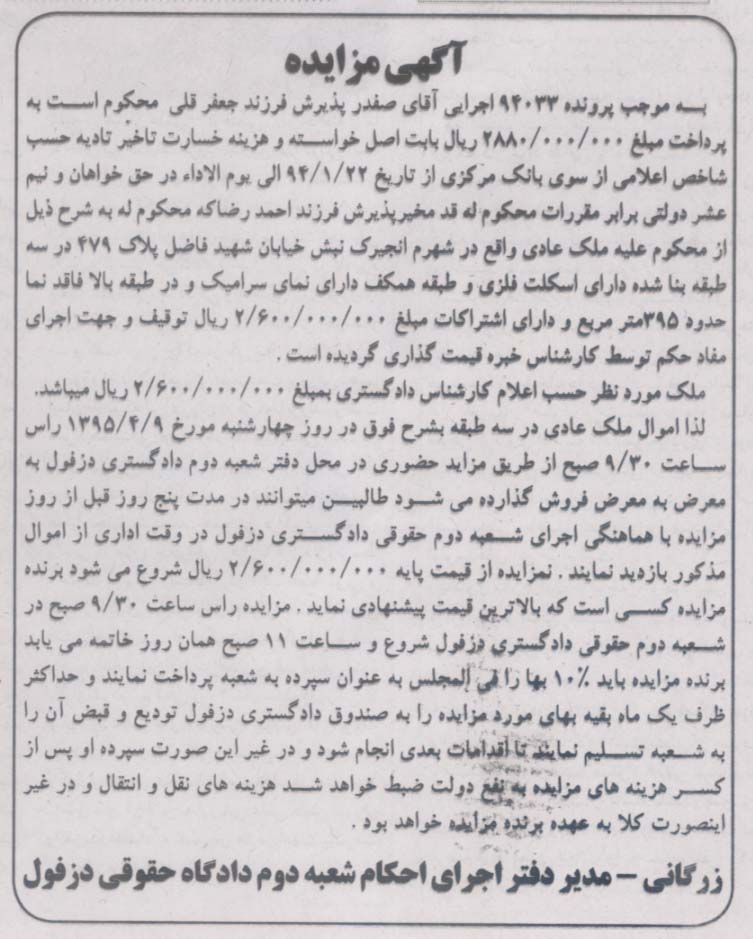 آگهی مزایده
بـه موجب پرونده ۹۴۰۳۳ اجرایی آقای صفدر پذیرش فرزند جعفر قلی محکوم اسـت به
پرداخت مبلغ ۲۸۸۰/۰۰۰/۰۰۰ ریال بابت اصل خواسـته و هزینه خسارت تاخیر تادیه حسب
شاخص اعلامی از سوی بانک مرکزی از تاریخ ۹۴/۱/۲۲ الی یوم الاداء در حق خواهان و نیم
عشر دولتی برابر مقررات محکوم له قد مخیرپذیرش فرزند احمد رضاکه محکوم له به شرح ذیل
از محکوم علیه ملک عادی واقع در شهرم انجیرک نبش خیابان شهید فاضل پلاک ۴۷۹ در سه
طبقه بنا شده دارای اسکلت فلزی و طبقه همکف دارای نمای سرامیک و در طبقه بالا فاقد نما
حدود ۳۹۵متر مربع و دارای اشتراکات مبلغ ۲/۶۰۰/۰۰۰/۰۰۰ ریال توقیف و جهت اجرای
مفاد حکم توسط کارشناس خبره قیمت گذاری گردیده است .
ملک مورد نظر حسب اعلام کارشناس دادگستری بمبلغ ۲/۶۰۰/۰۰۰/۰۰۰ ریال میباشد.
لذا اموال ملک عادی در سه طبقه بشرح فوق در روز چهارشنبه مورخ ۱۳۹۵/۴/۹ راس
سـاعت ۹/۳۰ صبح از طریق مزاید حضوری در محل دفتر شعبه دوم دادگستری دزفول به
معرض به معرض فروش گذارده می شـود طالبیـن میتوانند در مدت پنج روز قبل از روز
مزایده با هماهنگی اجرای شـعبه دوم حقوقی دادگسـتری دزفول در وقت اداری از اموال
مذکور بازدید نمایند . نمزایده از قیمت پایه ۲/۶۰۰/۰۰۰/۰۰۰ ریال شروع می شود برنده
مزایده کسـی است که بالاترین قیمت پیشنهادی نماید . مزایده راس ساعت ۹/۳۰ صبح در
شـعبه دوم حقوقی دادگستری دزفول شروع و سـاعت ۱۱ صبح همان روز خاتمه می یابد
برنده مزایده باید ۱۰٪ بها را فی المجلس به عنوان سپرده به شعبه پرداخت نمایند و حداکثر
ظرف یک ماه بقیه بهای مورد مزایده را به صندوق دادگستری دزفول تودیع و قبض آن را
به شـعبه تسـلیم نمایند تا اقدامات بعدی انجام شود و در غیر این صورت سپرده او پس از
کسـر هزینه های مزایده به نفع دولت ضبط خواهد شـد هزینه های نقل و انتقال و در غیر
اینصورت کلا به عهده برنده مزایده خواهد بود .
زرگانی – مدیر دفتر اجرای احکام شعبه دوم دادگاه حقوقی دزفول